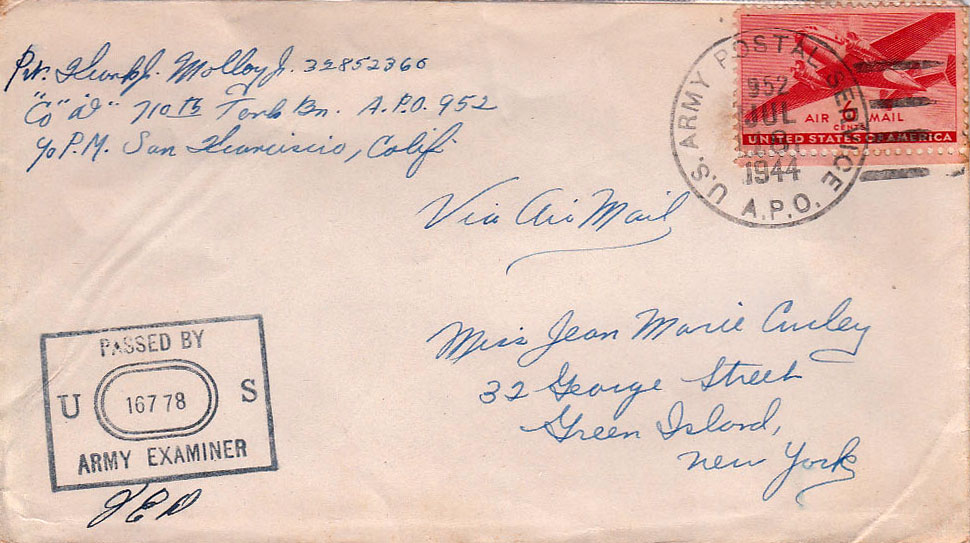 Pvt. Frank J. Molloy Jr. 32852360
"Co" "D" 710th Tank Bn. A.P.O. 952
c/o P.M. San Francisco, Calif.
U.S. ARMY POSTAL SERVICE
A.P.O.
952
JUL
1944
6
CENTS
AIR MAIL
UNITED STATES OF AMERICA
Via Air Mail
Miss Jean Marie Curley
32 George Street
Green Island,
New York
PASSED BY
U 16778 S
ARMY EXAMINER